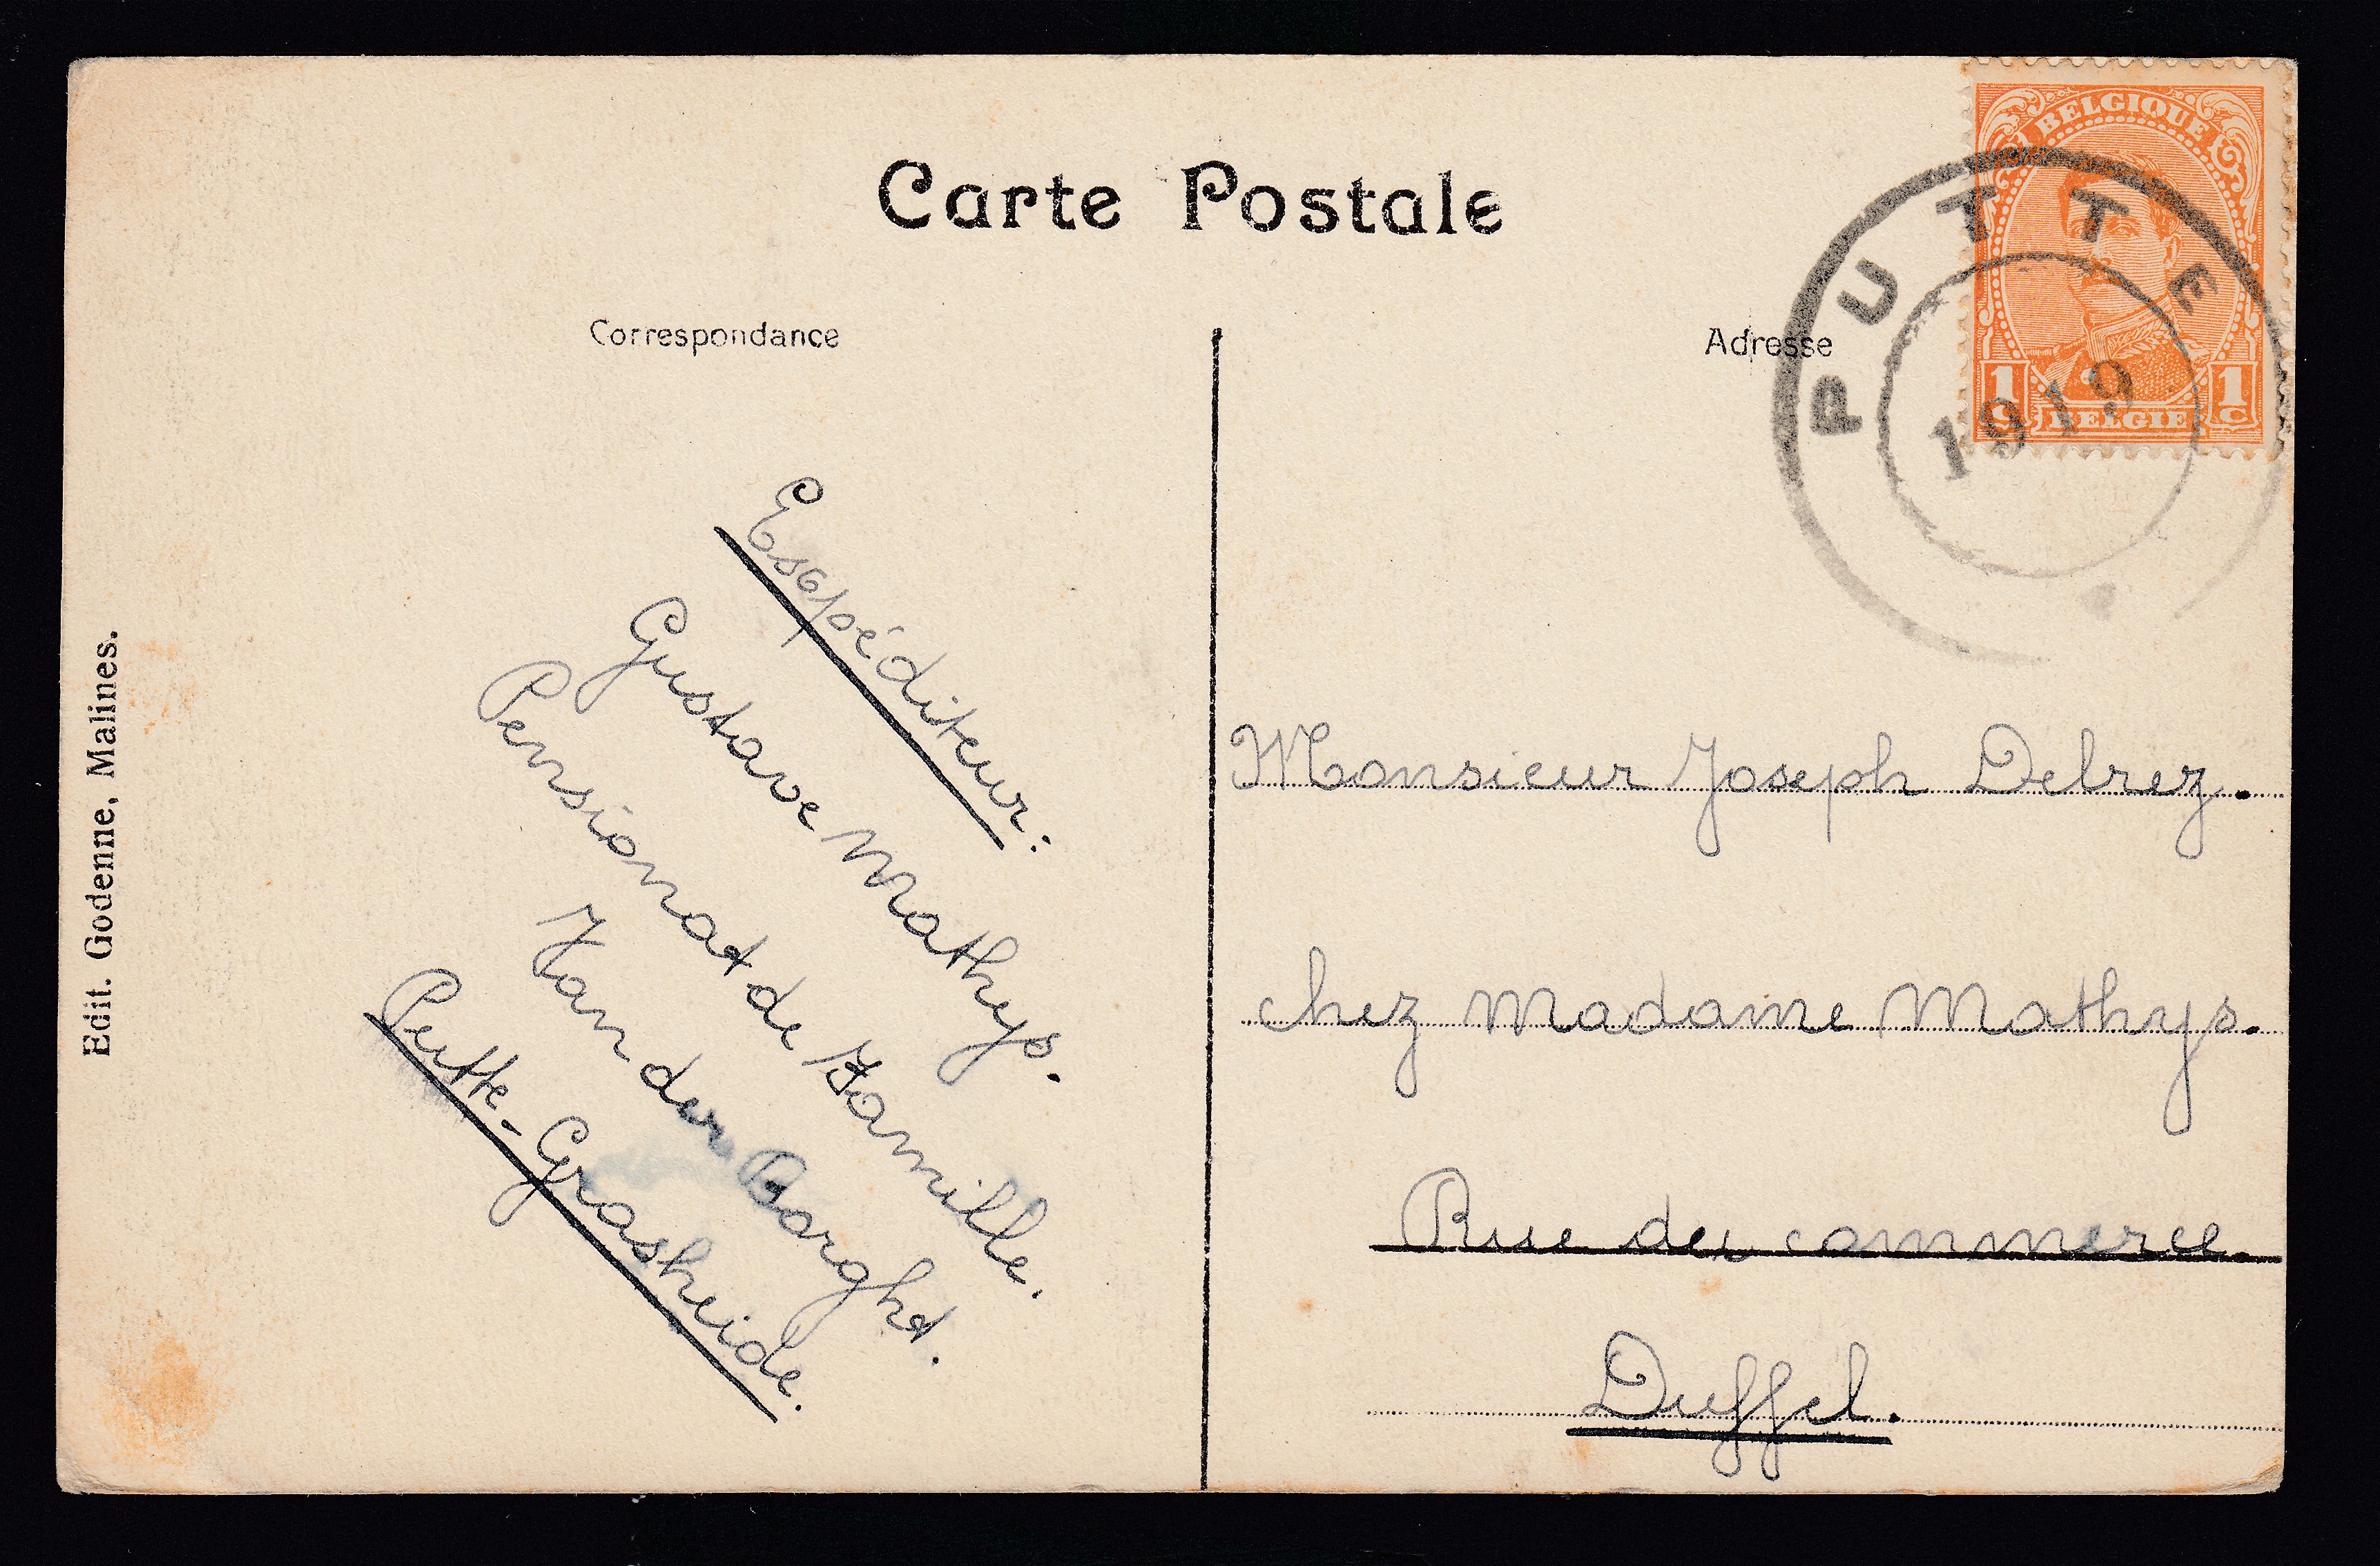 Carte Postale
Correspondance
Adresse
BELGIQUE
1c BELGIË 1c
PUTTE
1919
Expéditeur:
Gustave Mathys.
Pensionat de Famille.
Van der Borght.
Putte-Grasheide.
Monsieur Joseph Delrez.
chez Madame Mathys.
Rue du commerce.
Duffel.
Edit. Godenne, Malines.